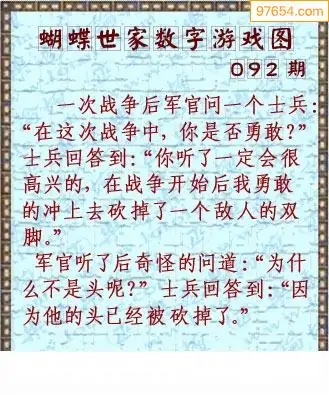 97654.com
蝴蝶世家数字游戏图
092期
一次战争后军官问一个士兵：
“在这次战争中，你是否勇敢？”
士兵回答到：“你听了一定会很
高兴的，在战争开始后我勇敢
的冲上去砍掉了一个敌人的双
脚。”
军官听了后奇怪的问道：“为什
么不是头呢？” 士兵回答到：“因
为他的头已经被砍掉了。”